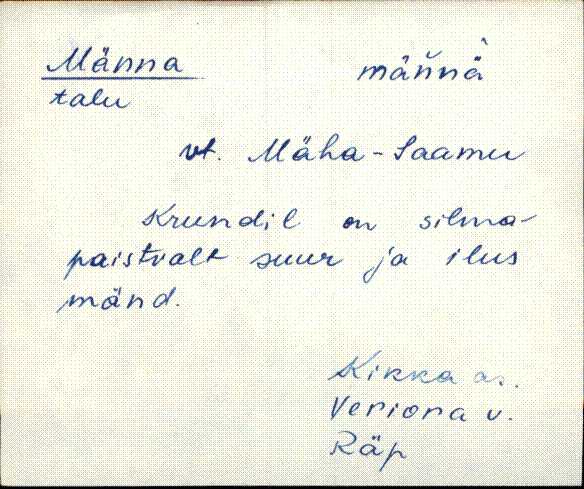 Männa männä
talu
vt. Mäha-Saamu
Krundil on silma-
paistvalt suur ja ilus
mänd.
Kikka as.
Veriora v.
Räp